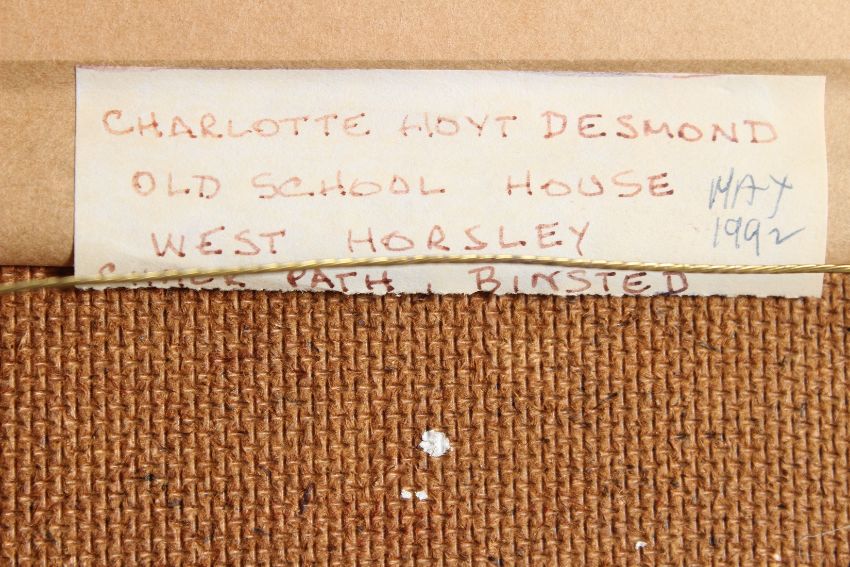 CHARLOTTE HOYT DESMOND
OLD SCHOOL HOUSE
WEST HORSLEY
MAY
1992
CHALK PATH, BINSTED